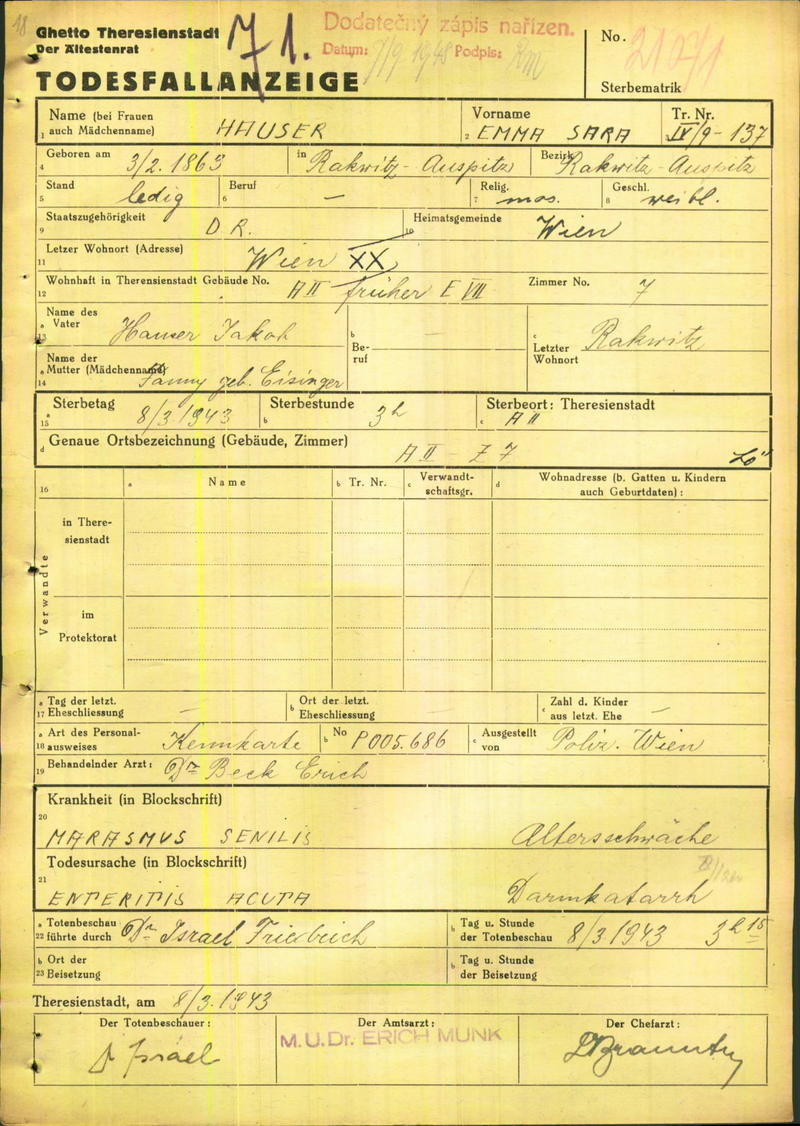 18
Ghetto Theresienstadt
Der Ältestenrat
71.
TODESFALLANZEIGE
Dodatečný zápis nařízen.
Datum: 7/9 1948 Podpis:
No.
Sterbematrik
Name (bei Frauen auch Mädchenname) HAUSER
1
Vorname
2 EMMA SARA
Tr. Nr.
3 IV/9-137
Geboren am 3/2. 1863 in Rakwitz-Auspitz Bezirk Rakwitz-Auspitz
4
Stand ledig Beruf — Relig. mos. Geschl. weibl.
5 6 7 8
Staatszugehörigkeit D R. Heimatsgemeinde Wien
9 10
Letzer Wohnort (Adresse) Wien XX
11
Wohnhaft in Theresienstadt Gebäude No. A II früher E VII Zimmer No. 7
12
Name des
a Vater Hauser Jakob
13
b Beruf —
c Letzter Wohnort Rakwitz
Name der
a Mutter (Mädchenname) Fanny geb. Eisinger
14
a Sterbetag 8/3.1943 b Sterbestunde 3h c Sterbeort: Theresienstadt A II
15
d Genaue Ortsbezeichnung (Gebäude, Zimmer) A II - Z 7
16 a Name b Tr. Nr. c Verwandtschaftsgr. d Wohnadresse (b. Gatten u. Kindern auch Geburtdaten):
Verwandte
in Theresienstadt
im Protektorat
a Tag der letzt.
17 Eheschliessung —
b Ort der letzt.
Eheschliessung —
c Zahl d. Kinder
aus letzt. Ehe —
a Art des Personal-
18 ausweises Kennkarte
b No P005.686
c Ausgestellt
von Poliz. Wien
Behandelnder Arzt: Dr Beck Erich
19
Krankheit (in Blockschrift)
20
MARASMUS SENILIS Altersschwäche
Todesursache (in Blockschrift)
21
ENTERITIS ACUTA Darmkatarrh
a Totenbeschau
22 führte durch Dr Israel Friedrich
b Tag u. Stunde
der Totenbeschau 8/3.1943 3h 15
b Ort der
23 Beisetzung
b Tag u. Stunde
der Beisetzung
Theresienstadt, am 8/3.1943
Der Totenbeschauer: Der Amtsarzt: Der Chefarzt:
Dr Israel
M.U.Dr. ERICH MUNK